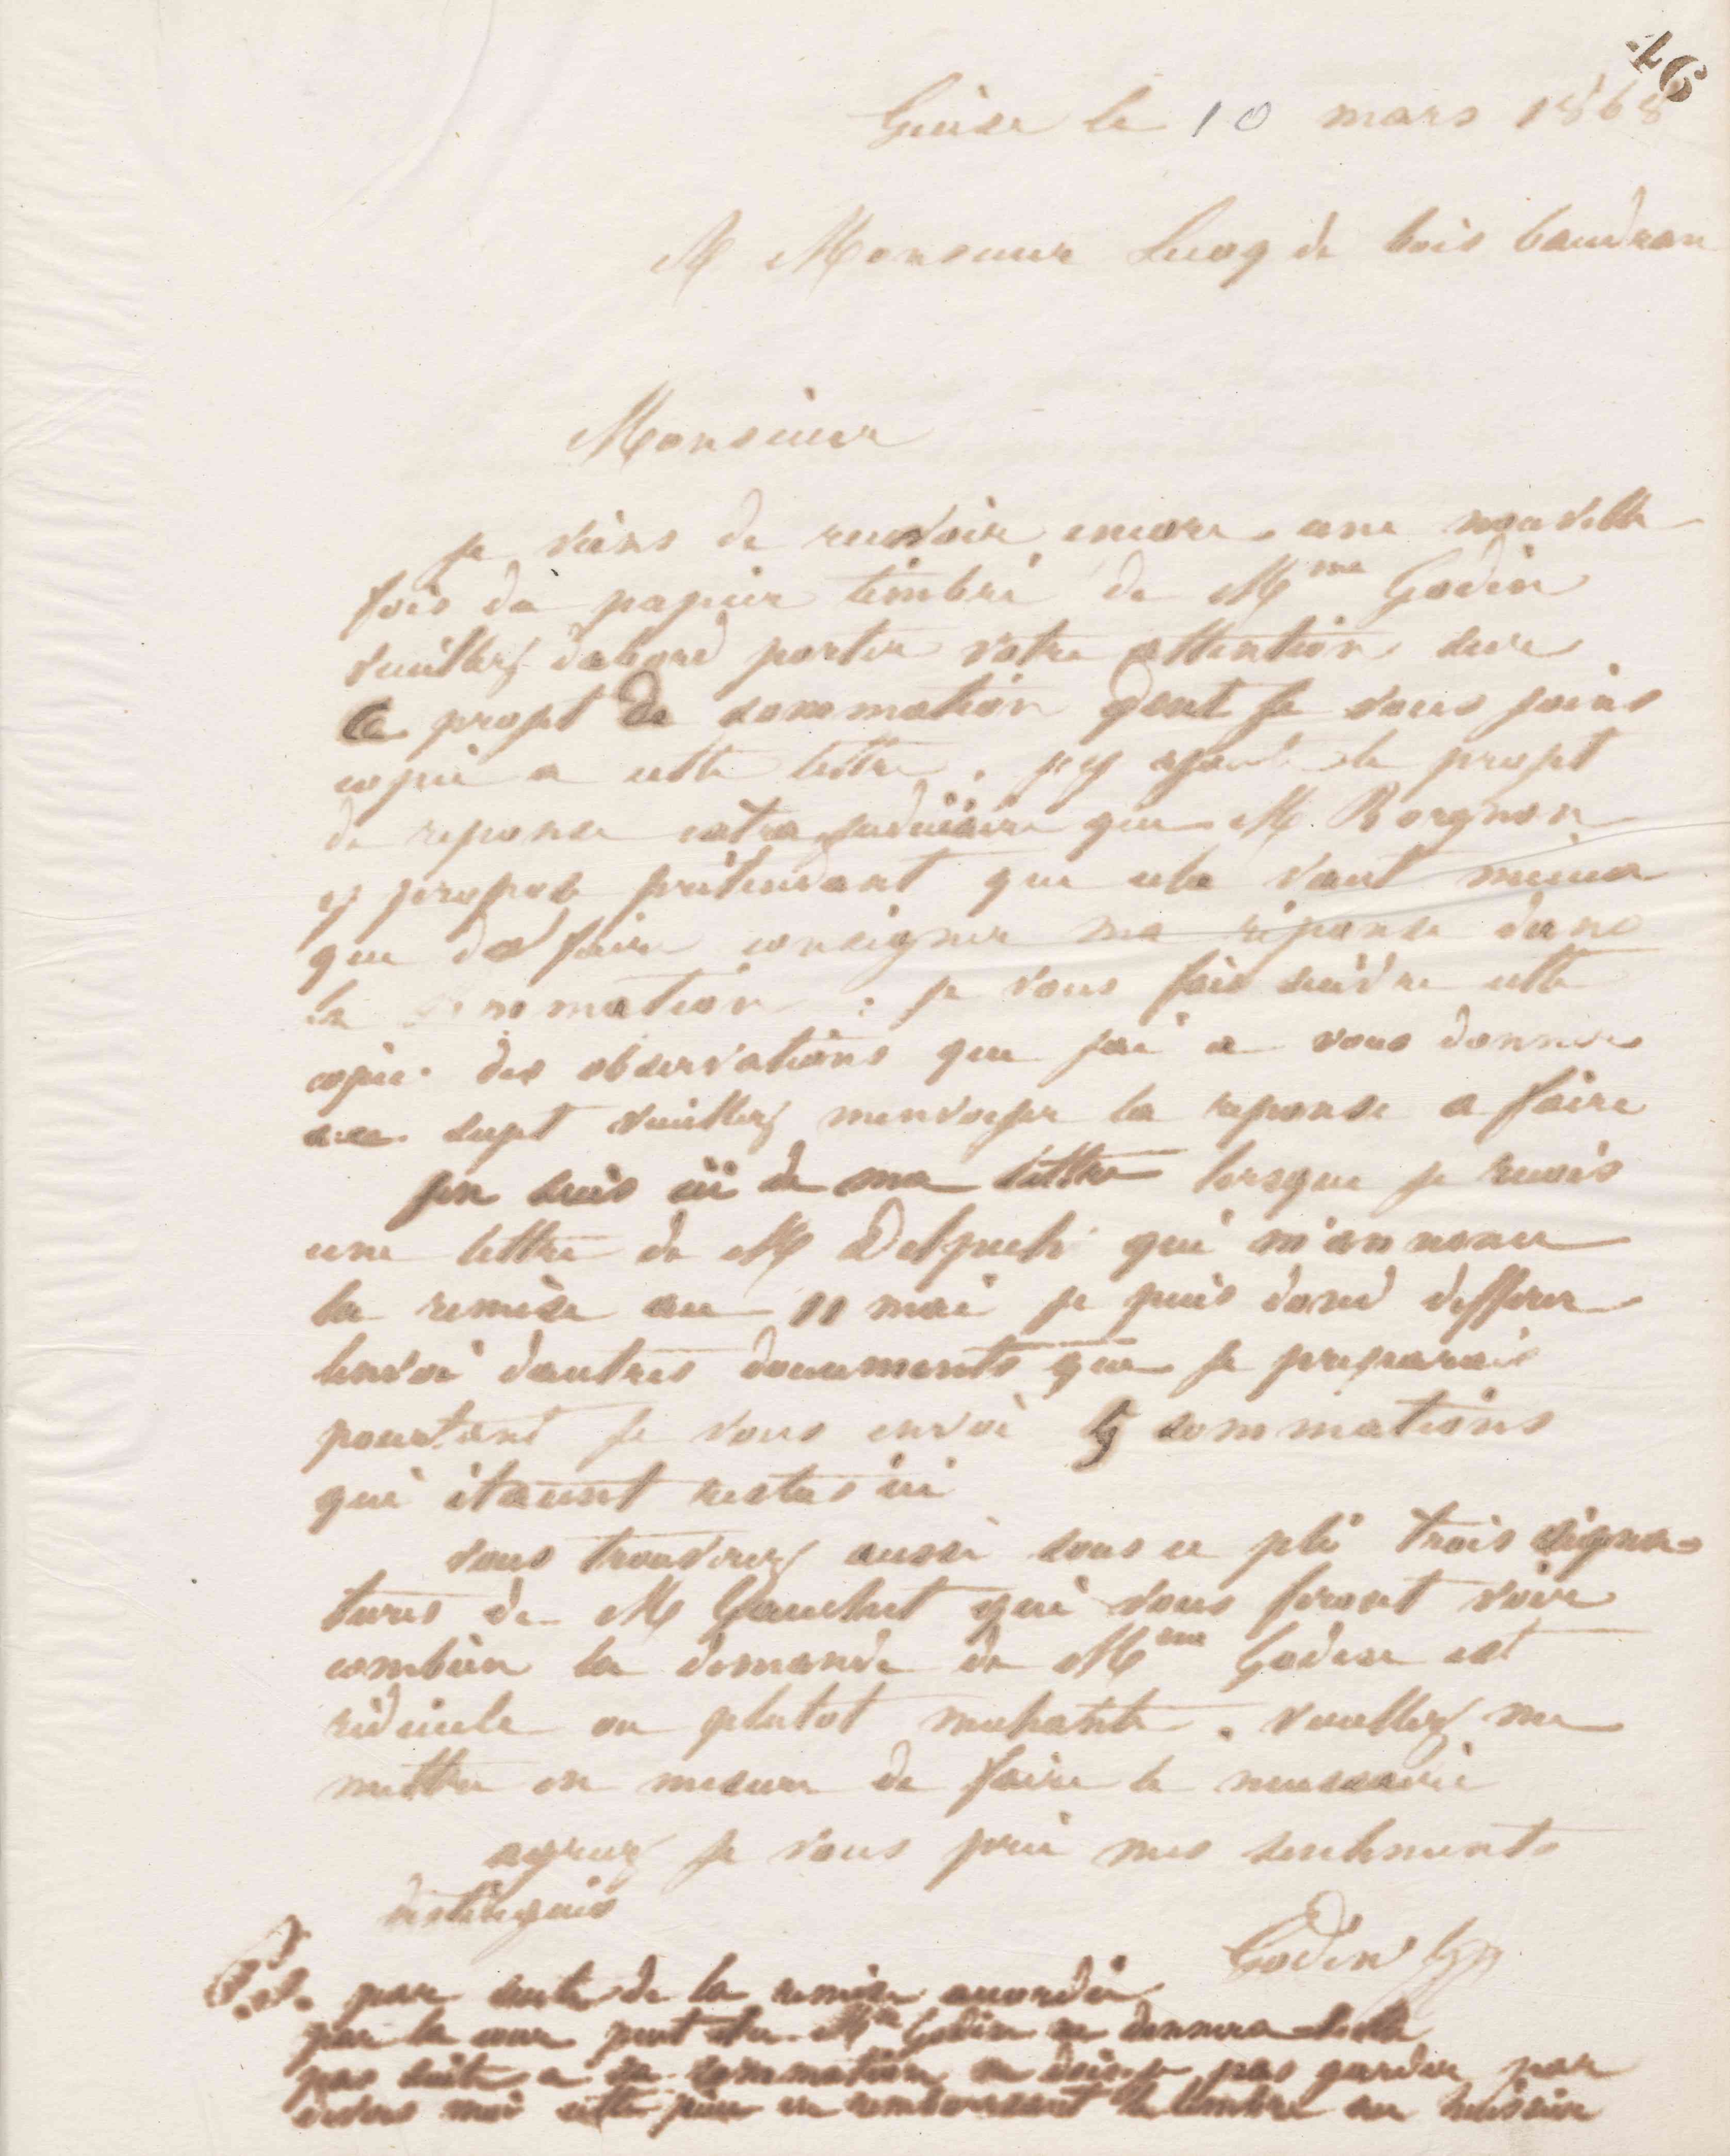 46
Guise le 10 mars 1868
A Monsieur Lecoq de bois baudran
Monsieur
je viens de recevoir encore une nouvelle
fois du papier timbré de Mme Godin
veuillez dabord porter votre attention sur
ce projet de sommation dont je vous joins
copie a cette lettre. j'y ajoute le projet
de reponse extra judiciaire que M Borgnon
y propose prétendant que cela vaut mieux
que de faire consigner ma réponse dans
la sommation : je vous fais suivre cette
copie des observations que j'ai a vous donner
au sujet veuillez menvoyer la reponse a faire
jen suis ici de ma lettre lorsque je reçois
une lettre de M Delpech qui m'annonce
la remise au 11 mai je puis donc differer
lenvoi dautres documents que je preparais
pourtant je vous envoi 5 sommations
qui étaient restes ici
vous trouverez aussi sous ce pli trois signa-
tures de M Gauchet qui vous feront voir
combien la demande de Mme Godin est
ridicule ou plutot mechante. veuillez me
mettre en mesure de faire le necessaire
agreez je vous prie mes sentiments
distingués
Godin
P.S. par suite de la remise accordée
par la cour peut etre Me Godin ne donnera-t-elle
pas suite a sa sommation ne dois-je pas garder par
devers moi cette pièce en remboursant le timbre au huissier